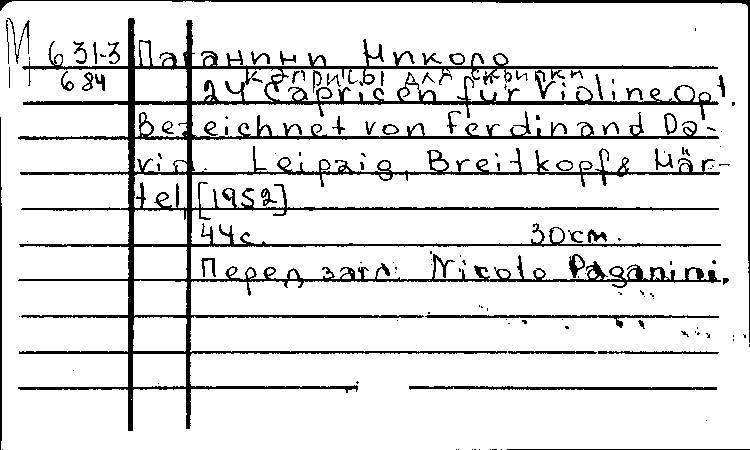 М 6 31-3 Паганини Николо
684 Каприсы для скрипки
24 Capricen für Violine Op 1.
Bezeichnet von Ferdinand Da-
vid. Leipzig, Breitkopf & Här-
tel, [1952]
44 с. 30 см.
Перед загл. Nicolo Paganini.